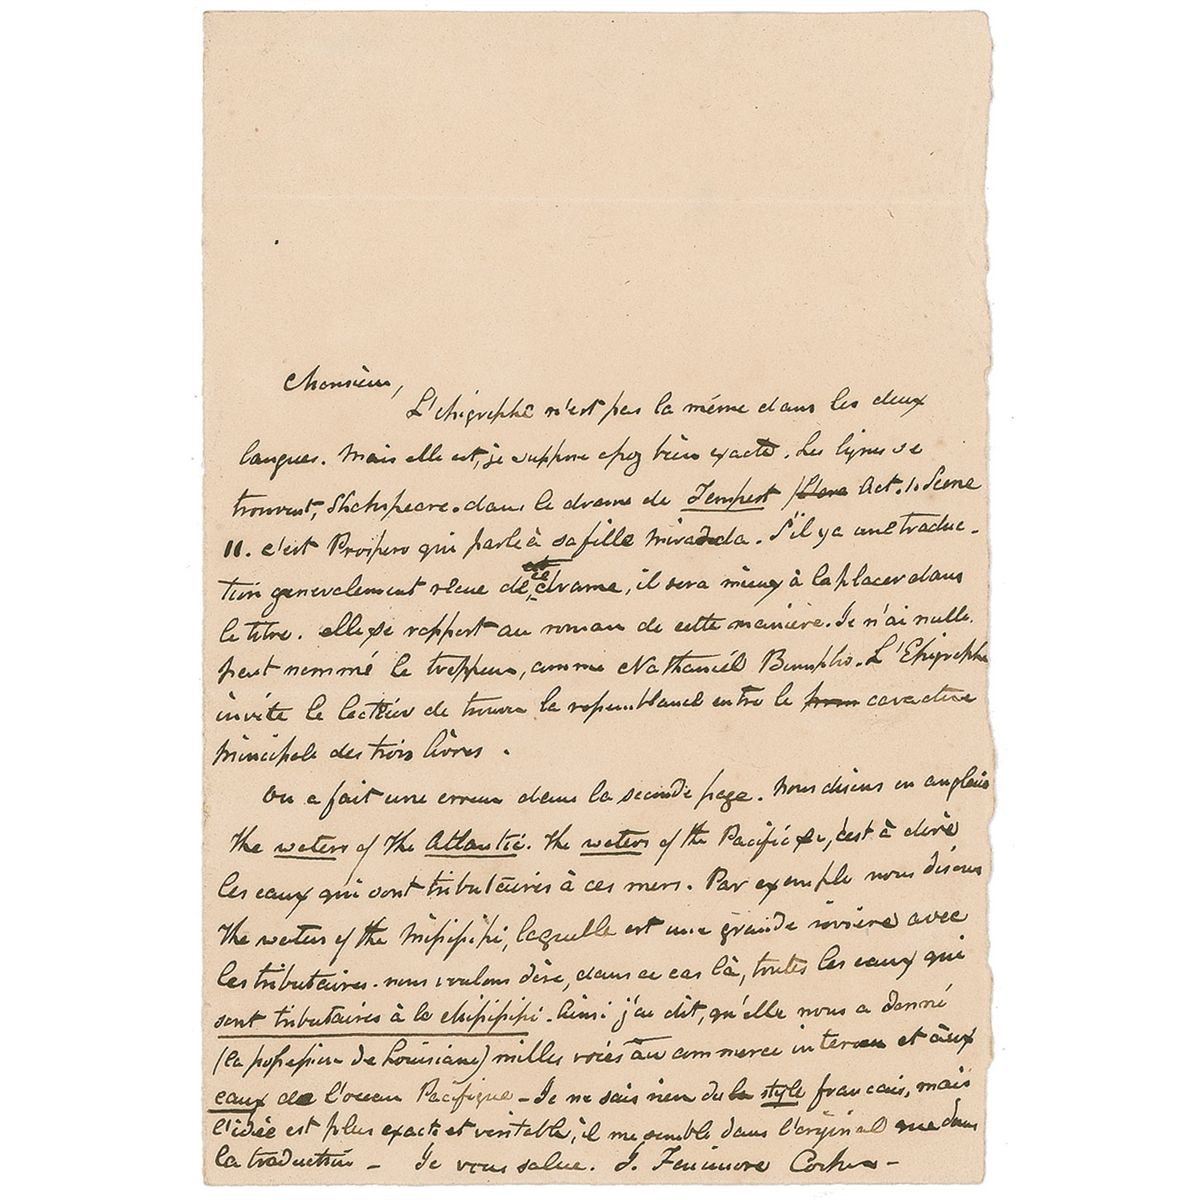 Monsieur,
L'Epigraphe n'est pas la même dans les deux
langues. Mais elle est, je suppose assez bien exacte. Les lignes se
trouvent, Shakspeare. dans le drame de Tempest Act. 1. Scene
II. c'est Prospero qui parle à sa fille Miranda. S'il y a une traduc-
tion generalement reçue de ce drame, il sera mieux à la placer dans
le titre. elle se rapport au roman de cette manière. Je n'ai nulle
part nommé le trappeur, comme Nathaniél Bumppo. L'Epigraphe
invite le lecteur de trouver la ressemblance entre le caractere
principale des trois livres.
On a fait une erreur dans la seconde page. Nous disons en anglais
The waters of the Atlantic. The waters of the Pacific, c'est à dire
les eaux qui sont tributaires à ces mers. Par exemple nous disons
the waters of the Missisippi, laquelle est une grande rivière avec
les tributaires. nous voulons dire, dans ce cas là, toutes les eaux qui
sont tributaires à la Missisippi. Ainsi j'ai dit, qu'elle nous a donné
(la possession de Louisiane) milles voiés au commerce interieur et aux
eaux de l'ocean Pacifique - Je ne sais rien du style francais, mais
l'idée est plus exacte et veritable, il me semble dans l'original que dans
la traduction - Je vous salue. J. Fenimore Cooper -